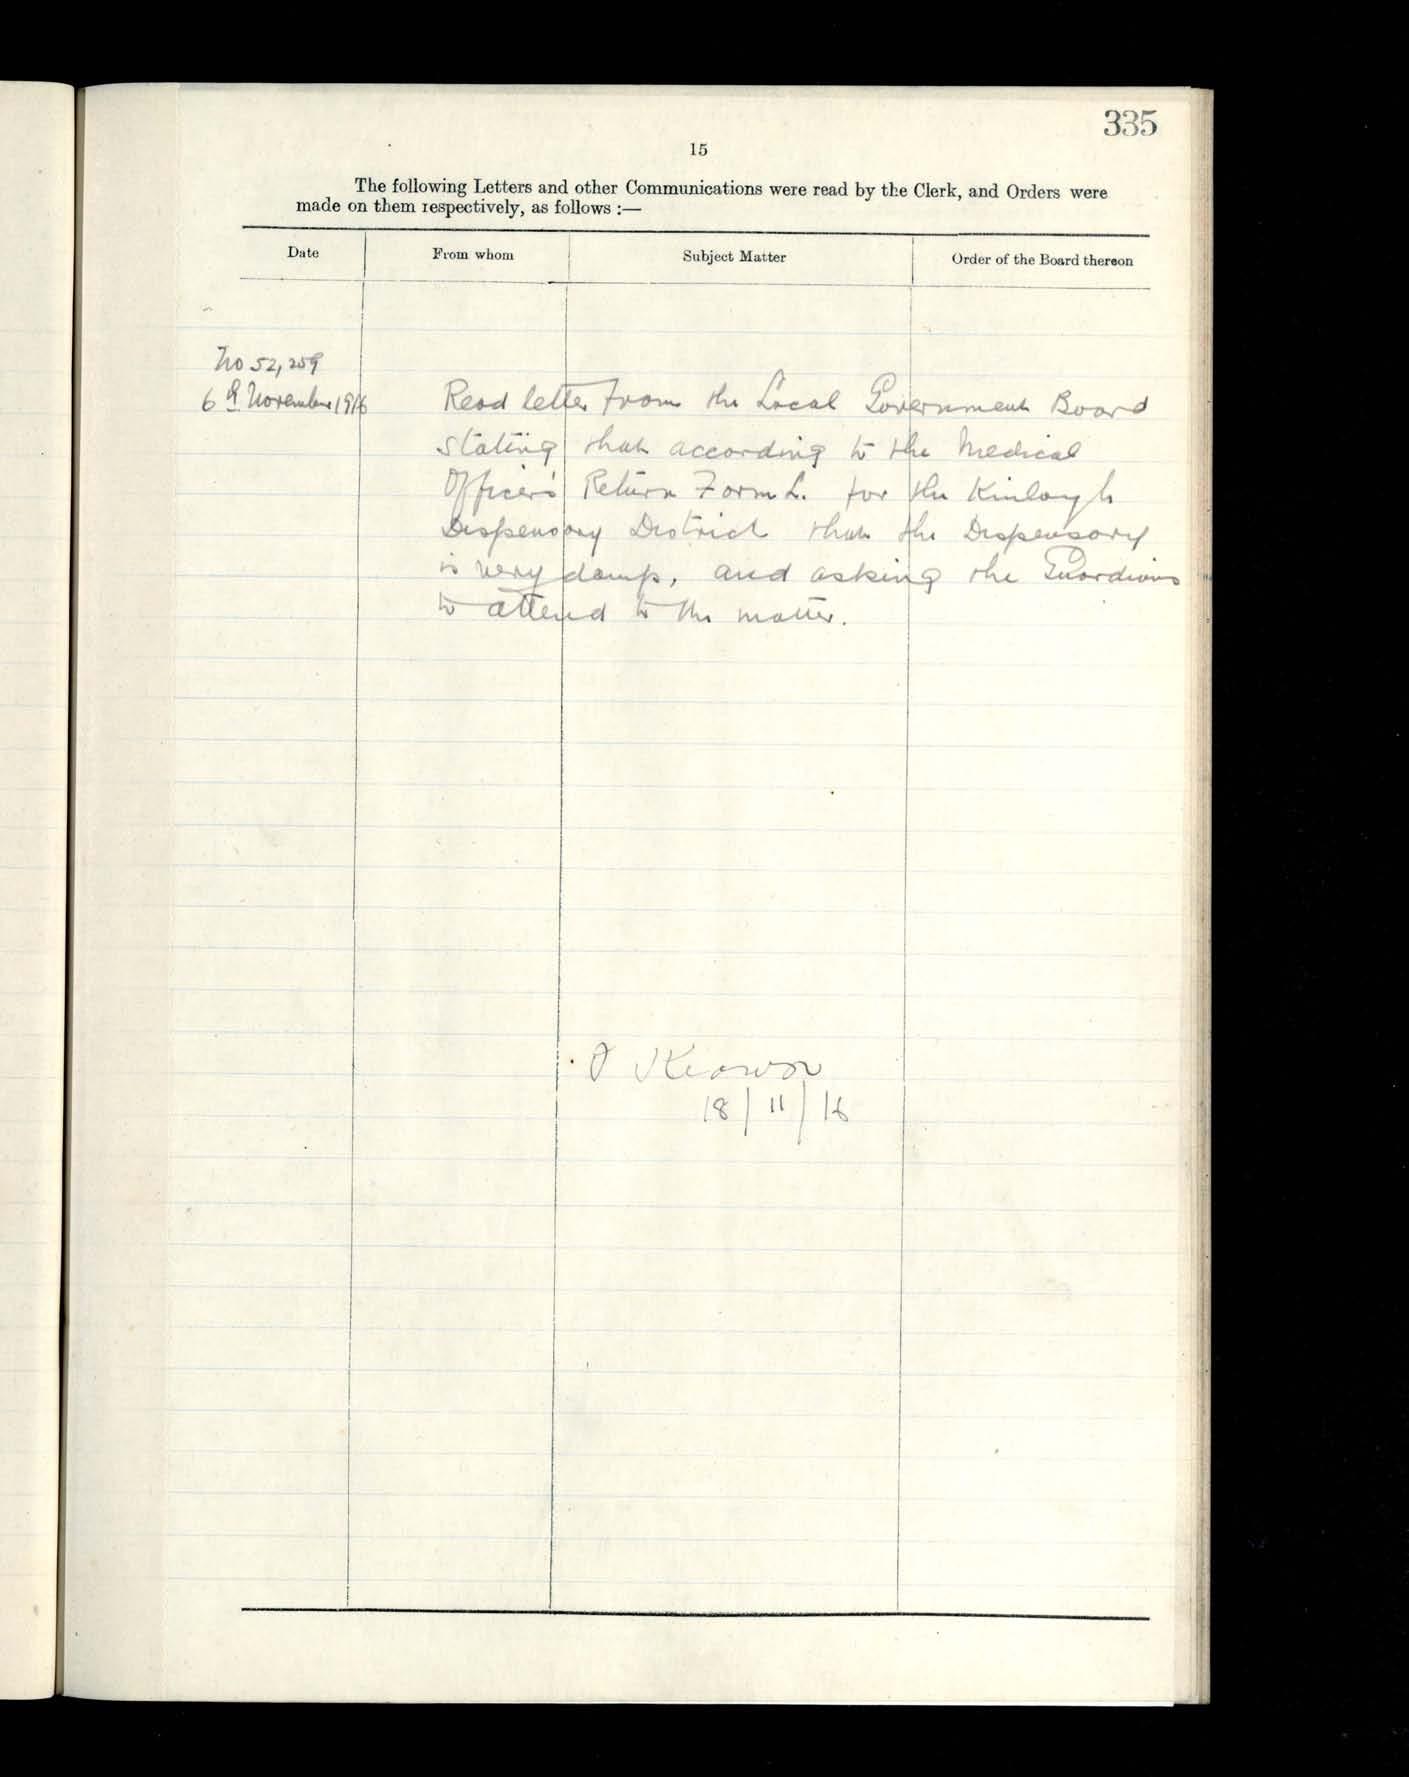 335
15
The following Letters and other Communications were read by the Clerk, and Orders were
made on them respectively, as follows :—
Date From whom Subject Matter Order of the Board thereon
No 52,259
6th November 1916 Read letter from the Local Government Board
stating that according to the Medical
Officer's Return Form L. for the Kinlough
Dispensary District that the Dispensary
is very damp, and asking the Guardians
to attend to the matter.
18/11/16